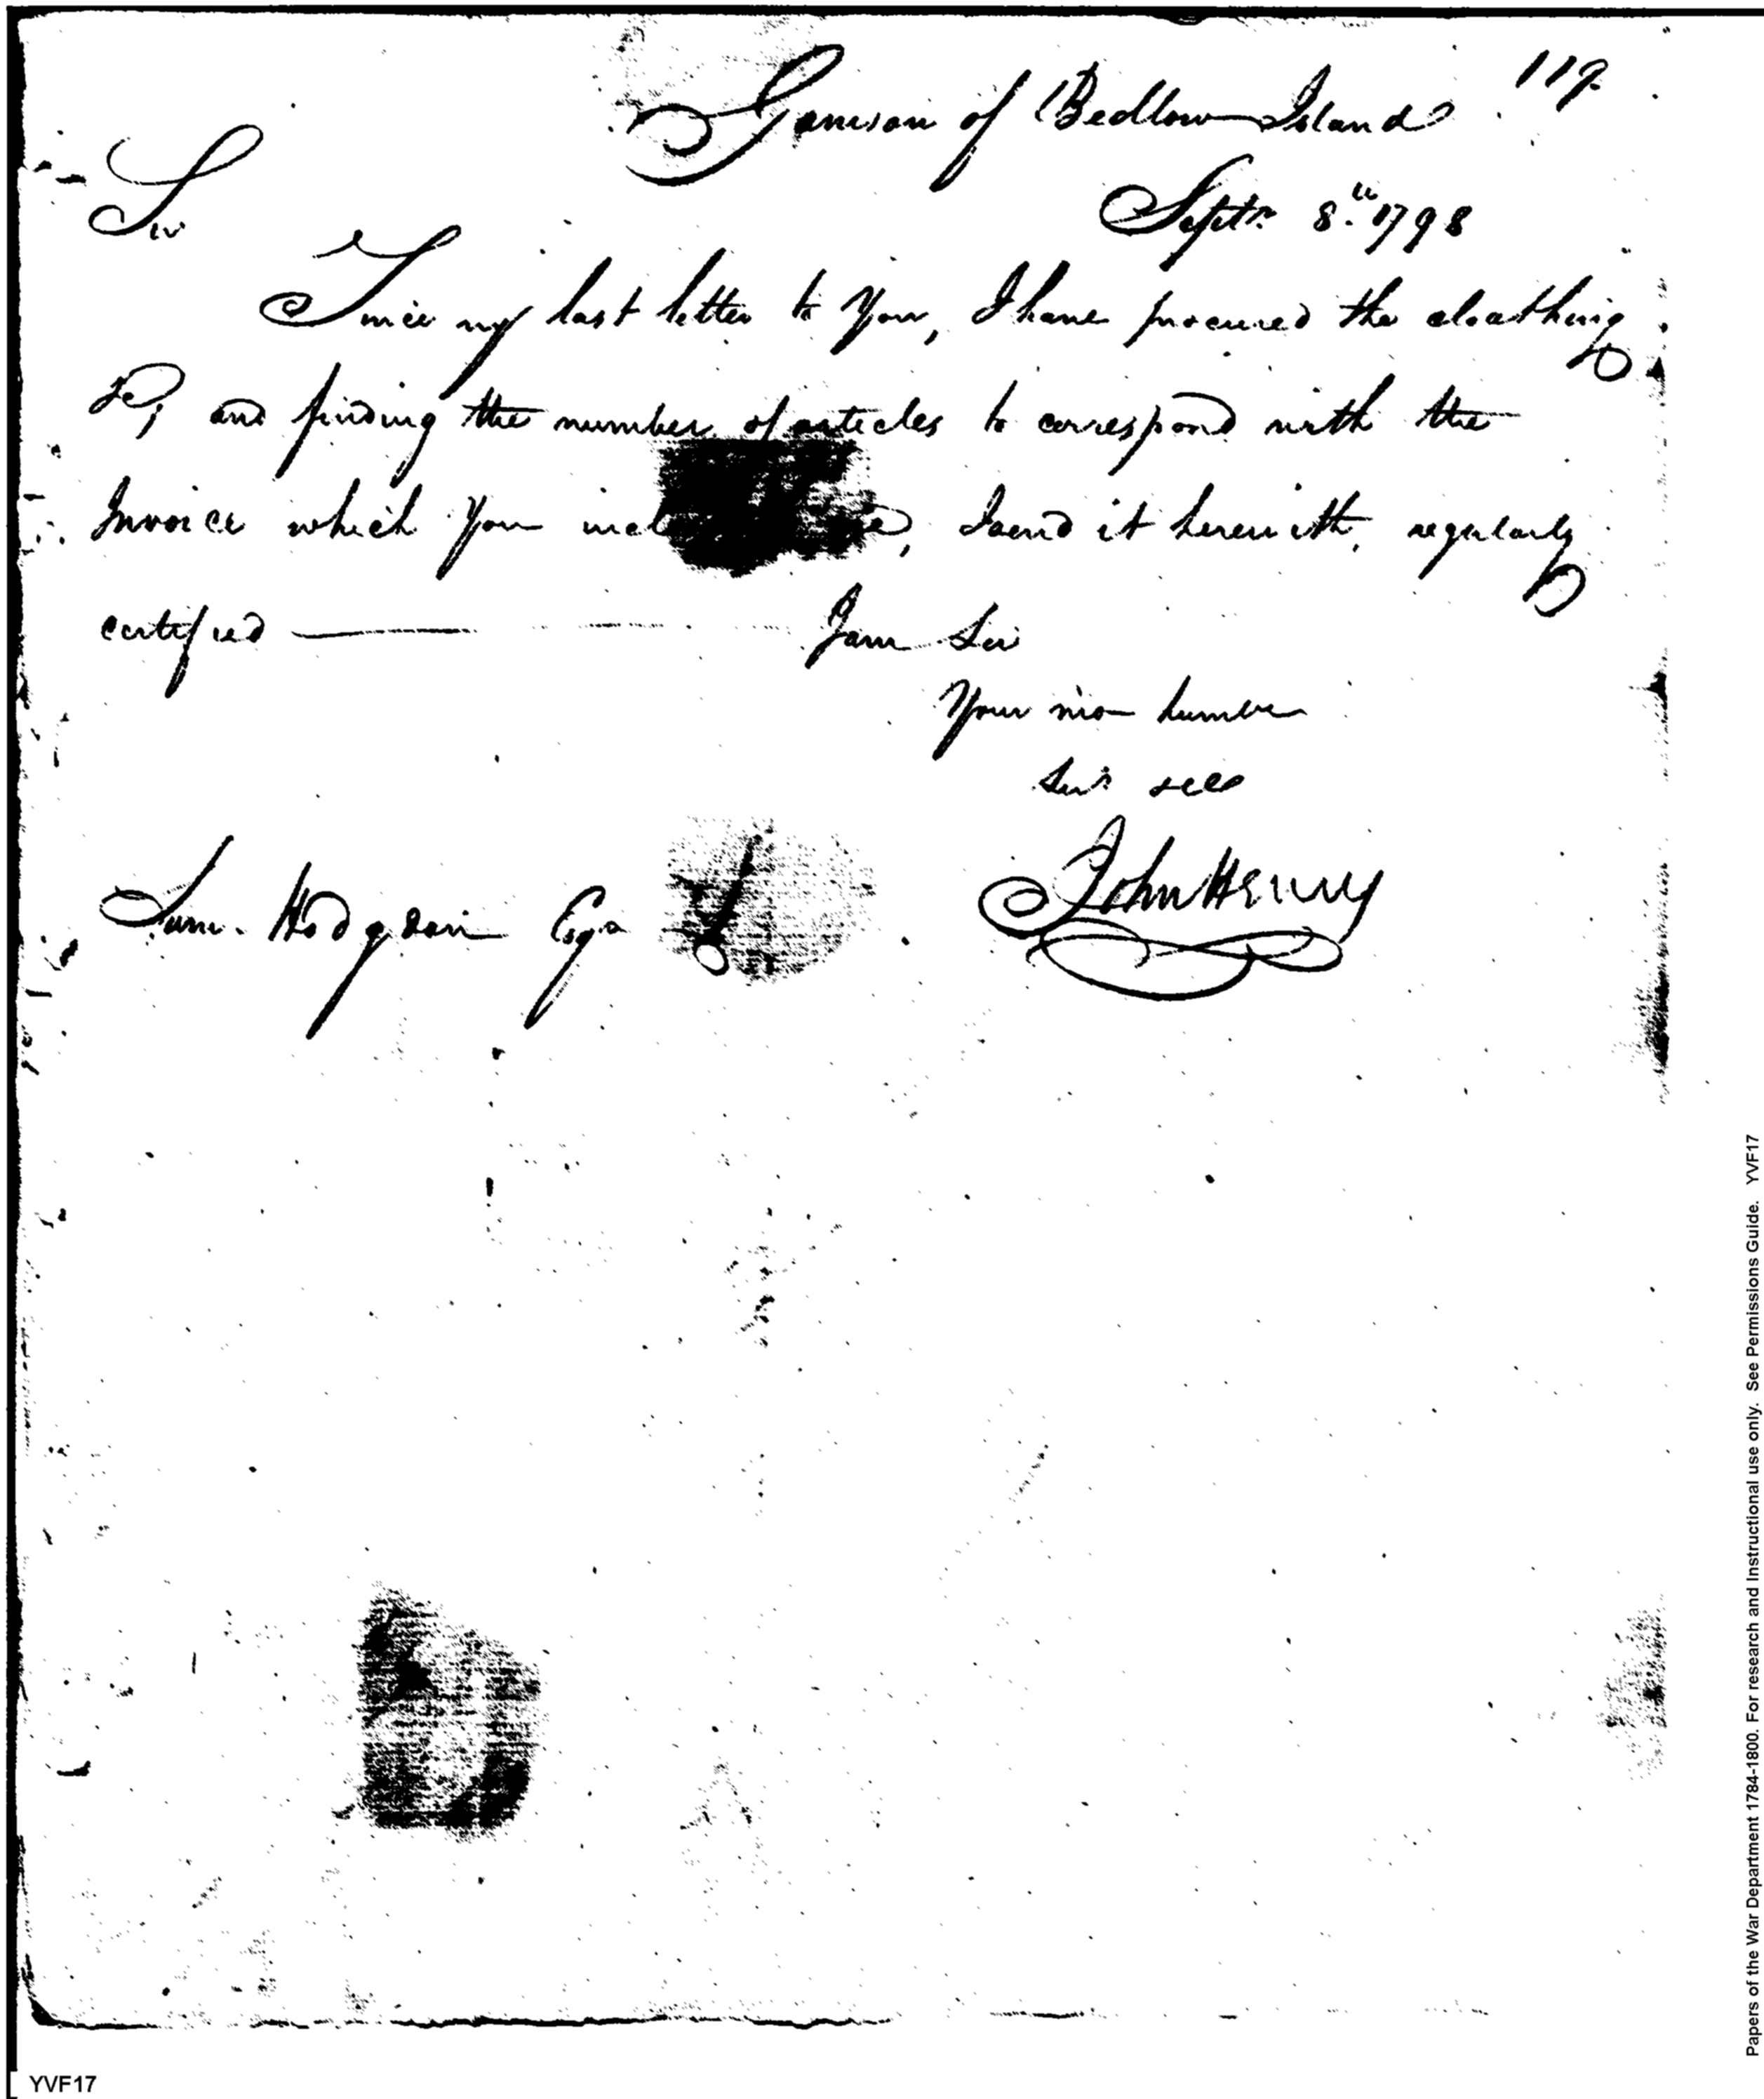 119
Garrison of Bedlow Island
Septr. 8th 1798
Sir
Since my last letter to You, I have procured the cloathing
&c, and finding the number of articles to correspond with the
Invoice which You , I send it herewith, regularly
certified I am Sir
Your mo humble
Sert
John Henry
Sam. Hodgdon Esqr
Papers of the War Department 1784-1800. For research and Instructional use only. See Permissions Guide. YVF17
YVF17